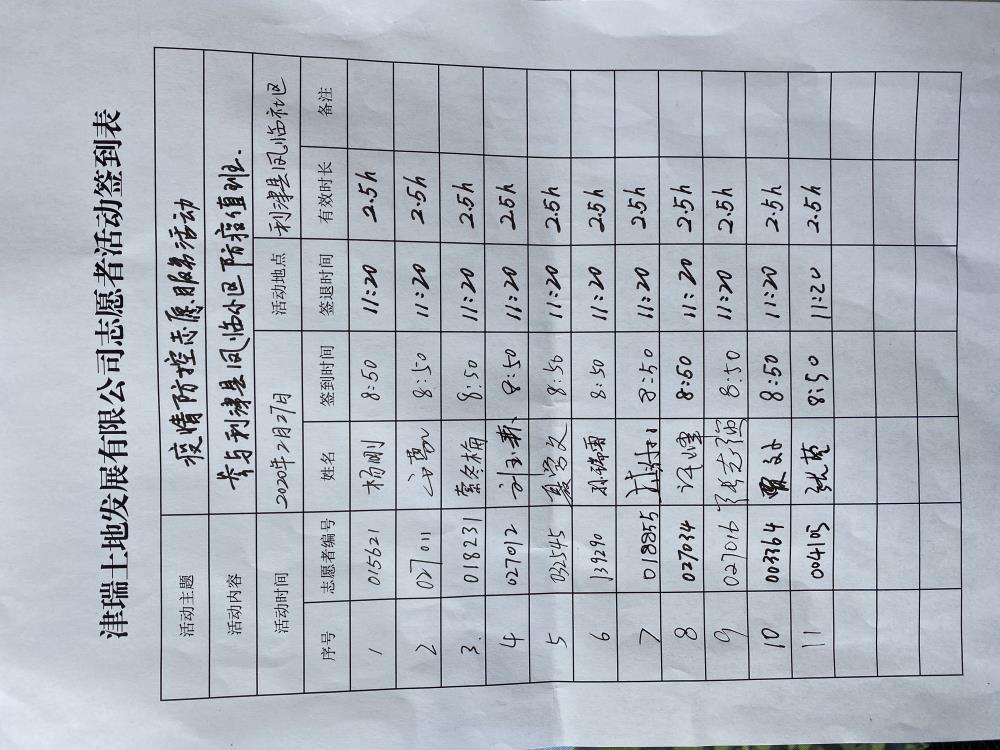 津瑞土地发展有限公司志愿者活动签到表
活动主题 疫情防控志愿服务活动
活动内容 参与利津县凤临小区防疫值班.
活动时间 2020年2月27日 活动地点 利津县凤临社区
序号 志愿者编号 姓名 签到时间 签退时间 有效时长 备注
1 015621 杨刚 8:50 11:20 2.5h
2 027011 8:50 11:20 2.5h
3. 018231 秦冬梅 8:50 11:20 2.5h
4 027012 8:50 11:20 2.5h
5 032545 8:50 11:20 2.5h
6 139290 孙瑞雪 8:50 11:20 2.5h
7 018855 8:50 11:20 2.5h
8 027034 8:50 11:20 2.5h
9 027016 8:50 11:20 2.5h
10 003364 8:50 11:20 2.5h
11 8:50 11:20 2.5h